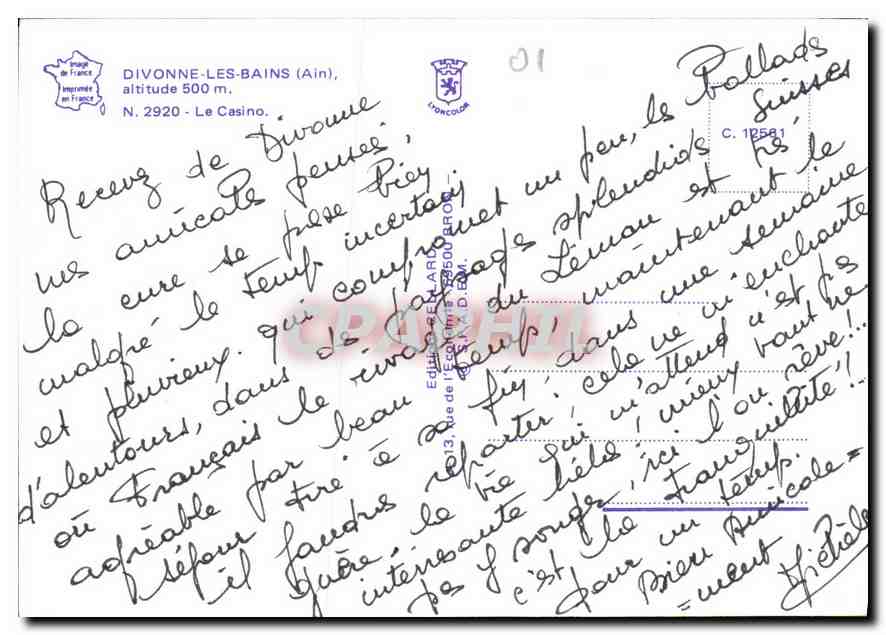 Image
de France
Imprimée
en France
DIVONNE-LES-BAINS (Ain),
altitude 500 m.
N. 2920 - Le Casino.
LYONCOLOR
01
C. 12581
13, rue de l'Economie - 69500 BRON -
CPAPHIL
Recevez de Divonne
mes amicales pensés,
la cure se passe bien
malgré le temps incertain
et pluvieux. qui compromet un peu, les Ballads
d'alentours, dans de paysages splendids Suisses
où Français le rivage du Léman est très
agréable par beau temps, maintenant le
séjour tire à sa fin, dans une semaine
il faudra repartir, cela ne m'enchante
guère, la vie qui m'attend n'est pas
intéressante hélas, mieux vaut ne
pas y songer, ici l'on rêve!..
c'est la tranquillité!..
pour un temps.
Bien Amicale=
=ment Michèle